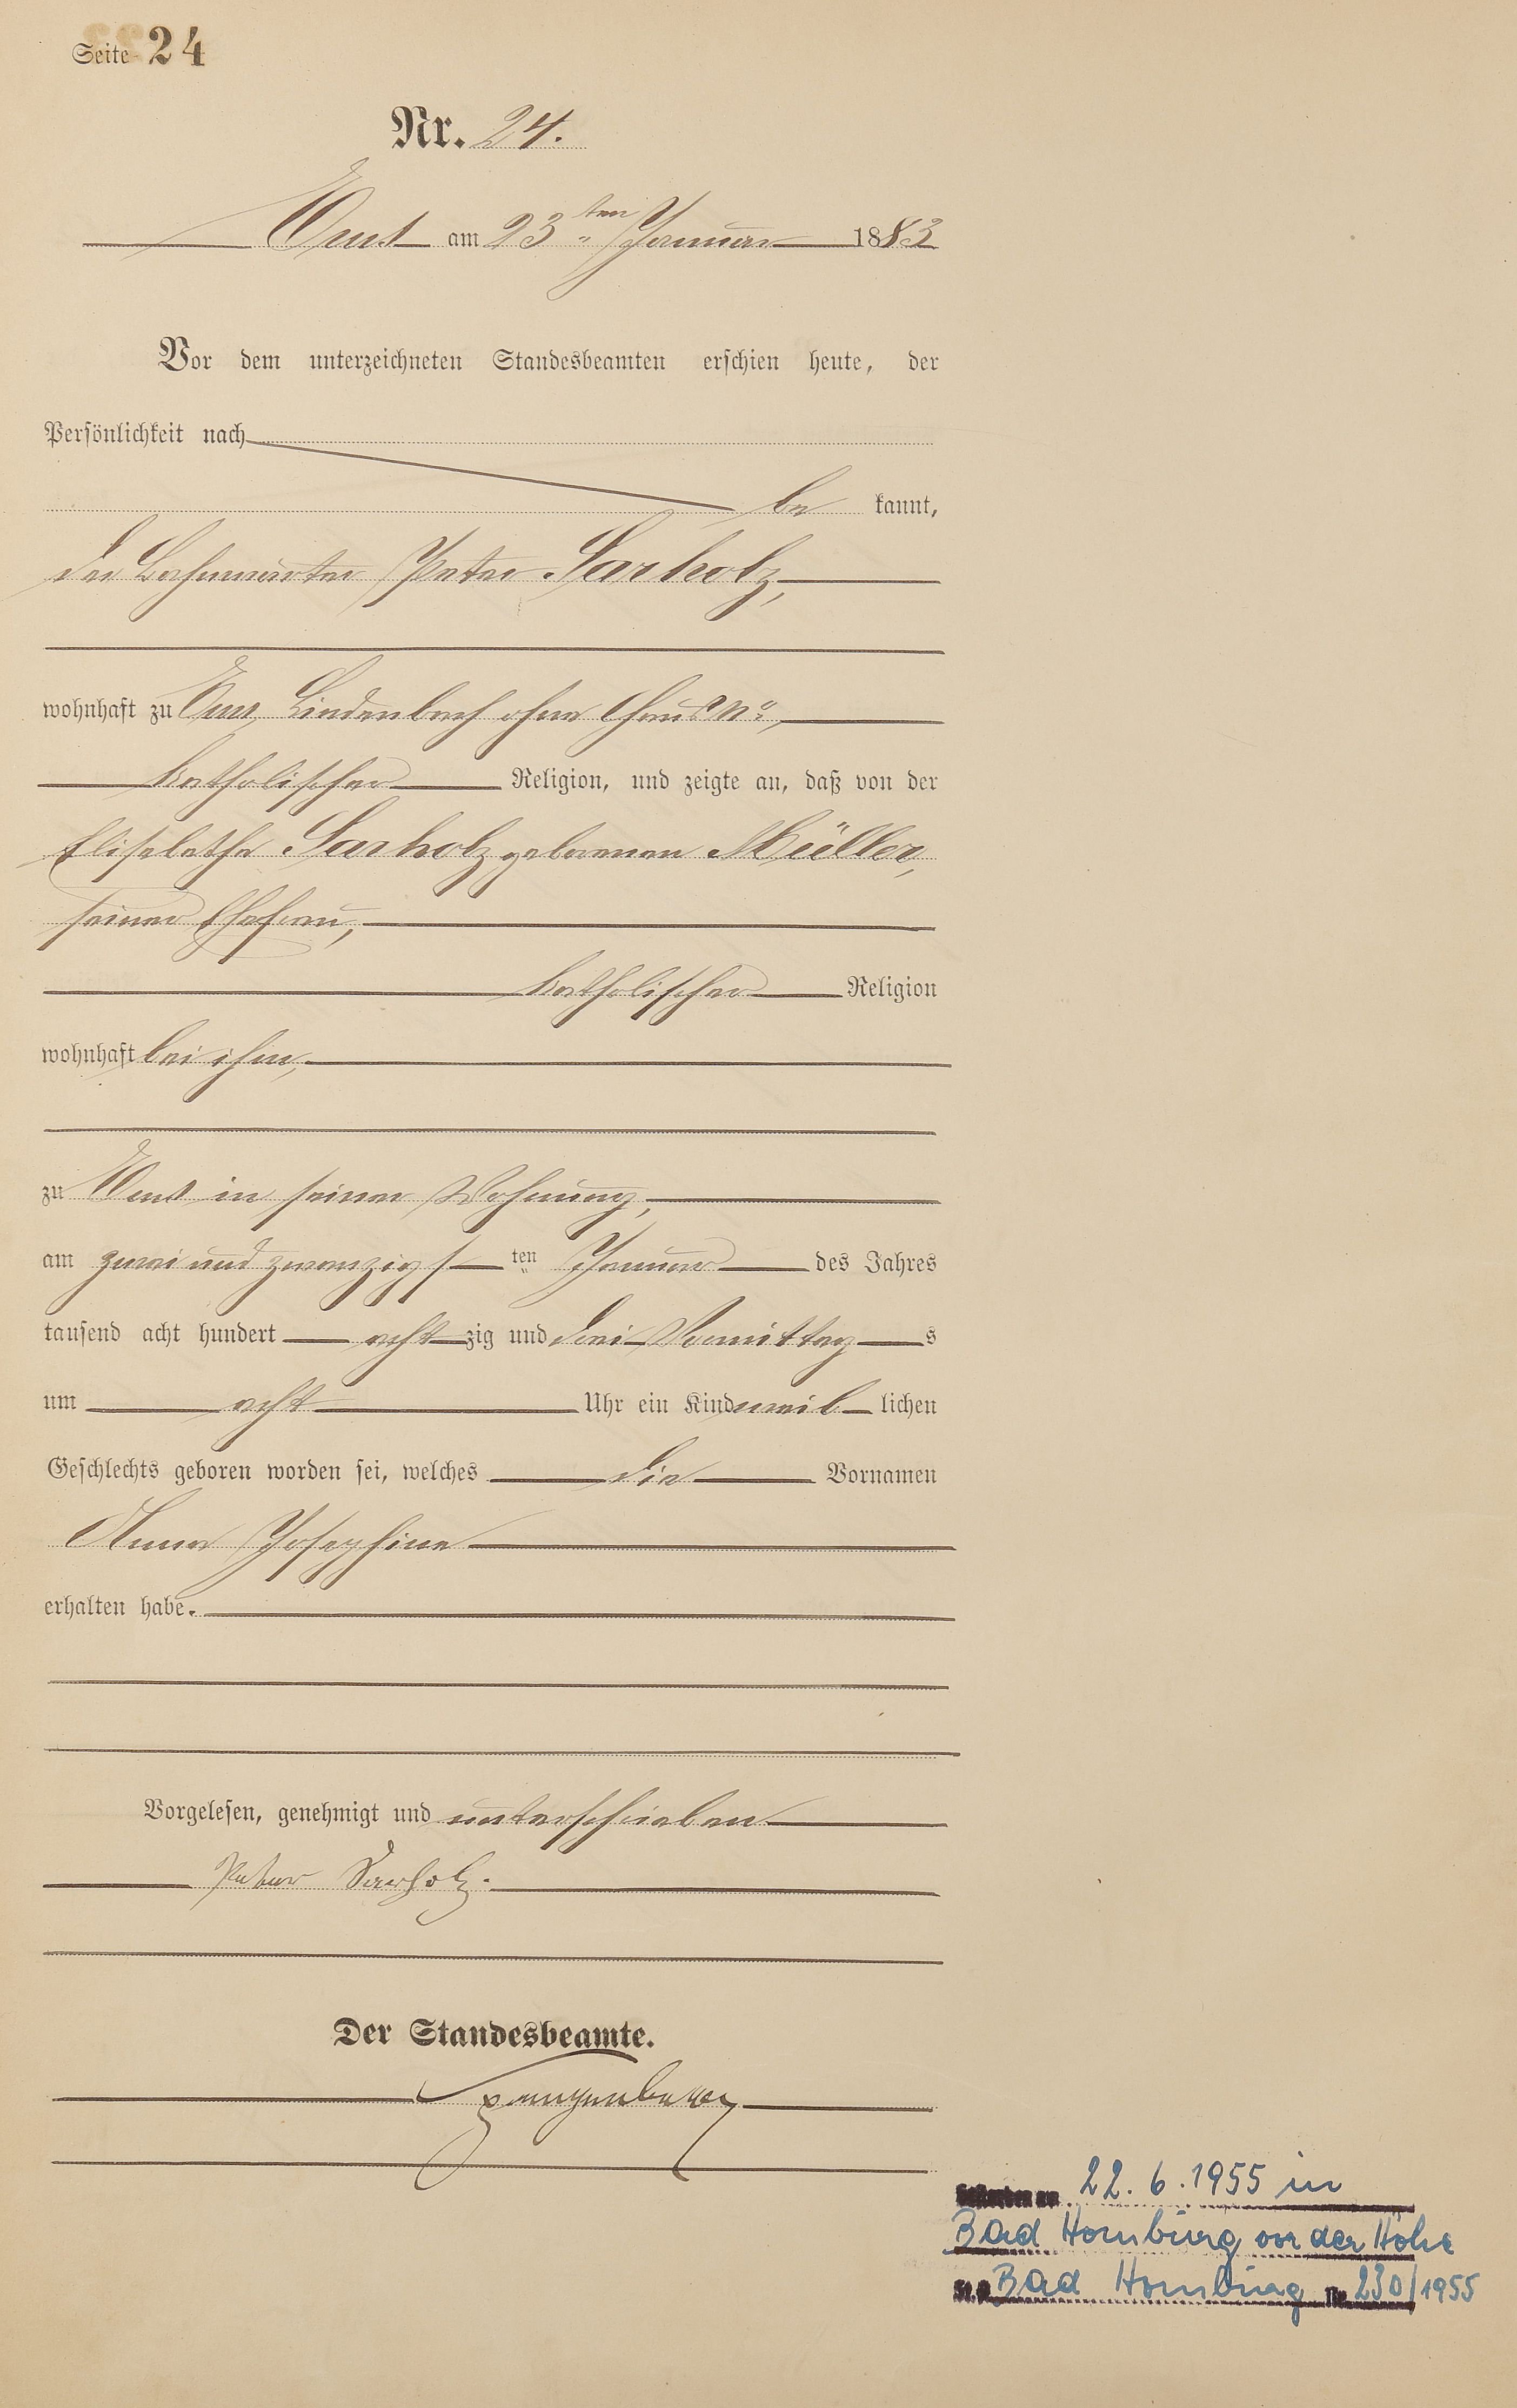 Seite 24
Nr. 24.
Ems am 23ten Januar 1883
Vor dem unterzeichneten Standesbeamten erschien heute, der
Persönlichkeit nach
be kannt,
der Bahnwärter Peter Sarholz,
wohnhaft zu Ems, Lindenbach ohne Haus No,
katholischer Religion, und zeigte an, daß von der
Elisabetha Sarholz geborenen Müller,
seiner Ehefrau,
katholischer Religion
wohnhaft bei ihm,
zu Ems in seiner Wohnung,
am zwei und zwanzigsten Januar des Jahres
tausend acht hundert acht zig und drei Vormittags
um acht Uhr ein Kind weiblichen
Geschlechts geboren worden sei, welches die Vornamen
Anna Josephine
erhalten habe.
Vorgelesen, genehmigt und unterschrieben
Peter Sarholz.
Der Standesbeamte.
Spangenberg
Gestorben am 22. 6. 1955 in
Bad Homburg vor der Höhe
St.A. Bad Homburg Nr. 230/1955